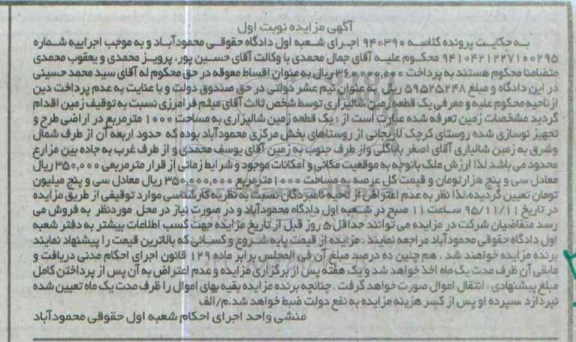 آگهی مزایده نوبت اول
به حکایت پرونده کلاسه ۹۴۰۳۹۰ اجرای شعبه اول دادگاه حقوقی محمودآباد و به موجب اجراییه شماره
۹۴۱۰۴۲۱۲۲۷۱۰۰۲۹۵ محکوم علیه آقای جمال محمدی با وکالت آقای حسین پور، پرویز محمدی و یعقوب محمدی
متضامنا محکوم هستند به پرداخت ۲۶۰،۰۰۰،۰۰۰ ریال به عنوان اقساط معوقه در حق محکوم له آقای سید محمد حسینی
در این دادگاه و مبلغ ۵۹۵۲۵۲۴۸ ریال به عنوان نیم عشر دولتی در حق صندوق دولت و با عنایت به عدم پرداخت دین
از ناحیه محکوم علیه و معرفی یک قطعه زمین شالیزاری توسط شخص ثالث آقای میثم فرامرزی نسبت به توقیف زمین اقدام
گردید مشخصات زمین تعرفه شده عبارت است از : یک قطعه زمین شالیزاری به مساحت ۱۰۰۰ مترمربع در اراضی طرح و
تجهیز نوسازی شده روستای کرچک لاریجانی از روستاهای بخش مرکزی محمودآباد بوده که حدود اربعه آن از طرف شمال
وشرق به زمین شالیاری آقای اصغر باباگلی واز طرف جنوب به زمین آقای یوسف محمدی و از طرف غرب به جاده بین مزارع
محدود می باشد لذا ارزش ملک باتوجه به موقعیت مکانی و امکانات موجود و شرایط زمانی از قرار مترمربعی ۳۵۰،۰۰۰ ریال
معادل سی و پنج هزارتومان و قیمت کل عرصه به مساحت ۱۰۰۰ مترمربع ۳۵۰،۰۰۰،۰۰۰ ریال معادل سی و پنج میلیون
تومان تعیین گردیده،لذا نظر به عدم اعتراض از ناحیه نامبردگان نسبت به نظریه کارشناسی موارد توقیفی از طریق مزایده
در تاریخ ۹۵/۱۱/۱۱ ساعت ۱۱ صبح در شعبه اول دادگاه محمودآباد و در صورت نیاز در محل موردنظر به فروش می
رسد متقاضیان شرکت در مزایده می توانند حداقل ۵ روز قبل از تاریخ مزایده جهت کسب اطلاعات بیشتر به دفتر شعبه
اول دادگاه حقوقی محمودآباد مراجعه نمایند . مزایده از قیمت پایه شروع و کسانی که بالاترین قیمت را پیشنهاد نمایند
برنده مزایده خواهند شد . هم چنین ده درصد مبلغ آن فی المجلس برابر ماده ۱۲۹ قانون اجرای احکام مدنی دریافت و
مابقی آن ظرف مدت یک ماه اخذ خواهد شد و یک هفته پس از برگزاری مزایده و عدم اعتراض به آن پس از پرداختن کامل
مبلغ پیشنهادی ، انتقال اموال صورت خواهد گرفت . چنانچه برنده مزایده بقیه بهای اموال را ظرف مدت یک ماه تعیین شده
نپردازد سپرده او پس از کسر هزینه مزایده به نفع دولت ضبط خواهد شد.م/الف
منشی واحد اجرای احکام شعبه اول حقوقی محمودآباد